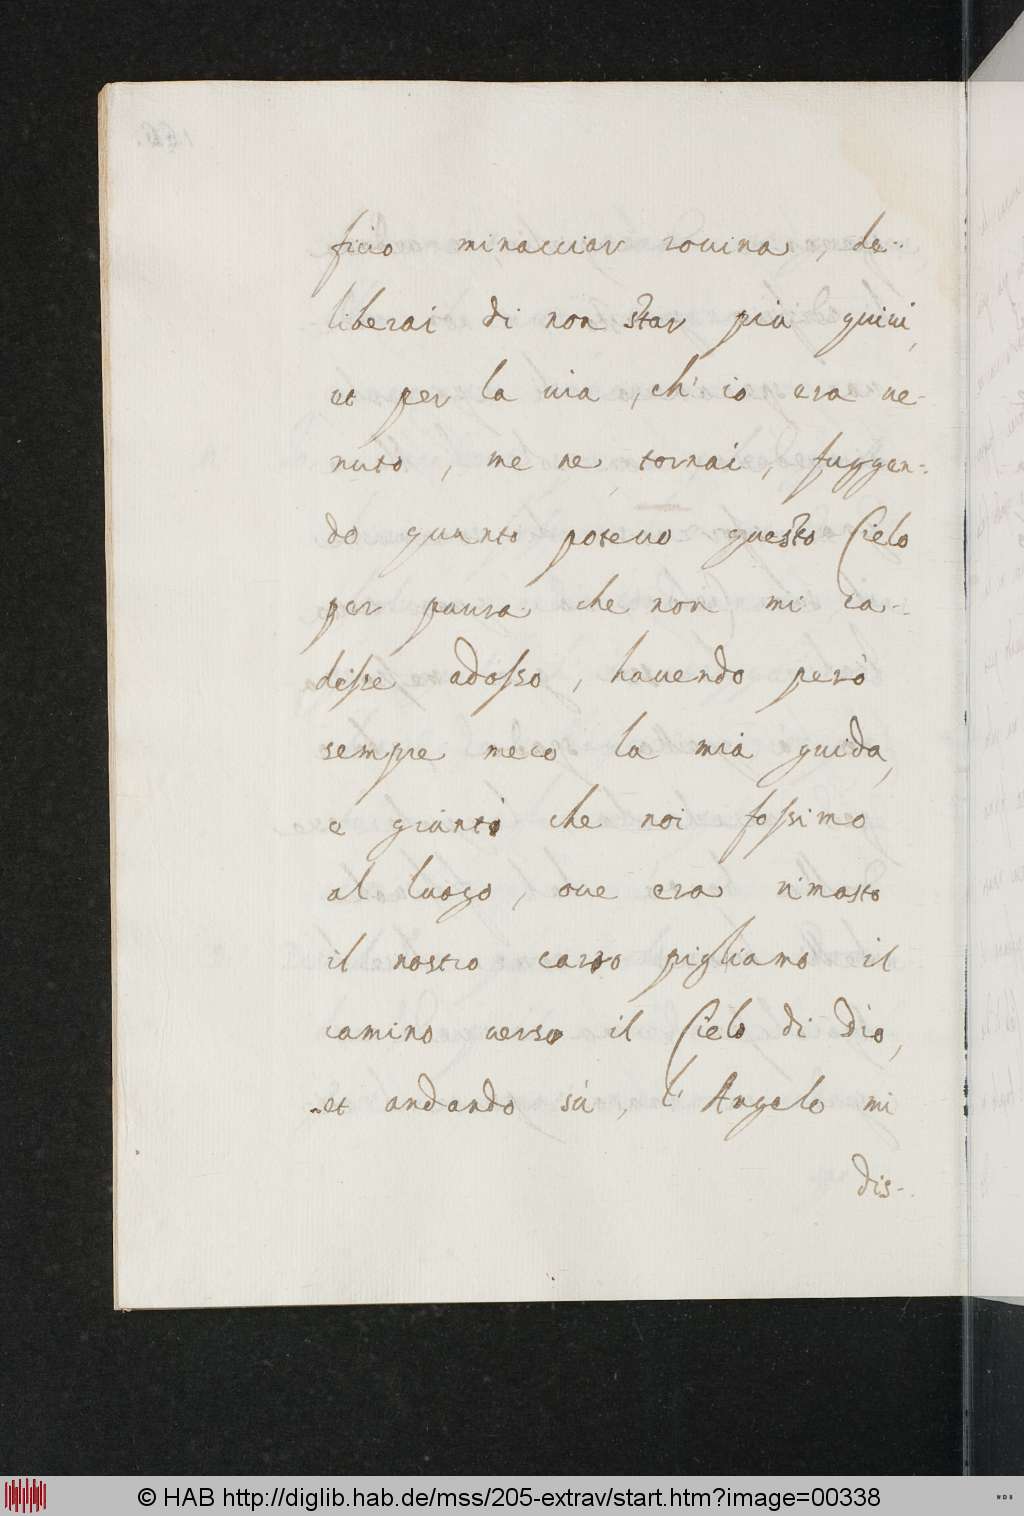 ficio minacciar rouina, de-
liberai di non star più quiui,
et per la uia, ch' io era ue-
nuto, me ne tornai, fuggen-
do quanto poteuo questo Cielo
per paura che non mi ca-
desse adosso, hauendo però
sempre meco la mia guida,
e giunti che noi fossimo
al luogo, oue era rimasto
il nostro carro pigliamo il
camino uerso il Cielo di Dio,
et andando sù, l' Angelo mi
dis-
© HAB http://diglib.hab.de/mss/205-extrav/start.htm?image=00338